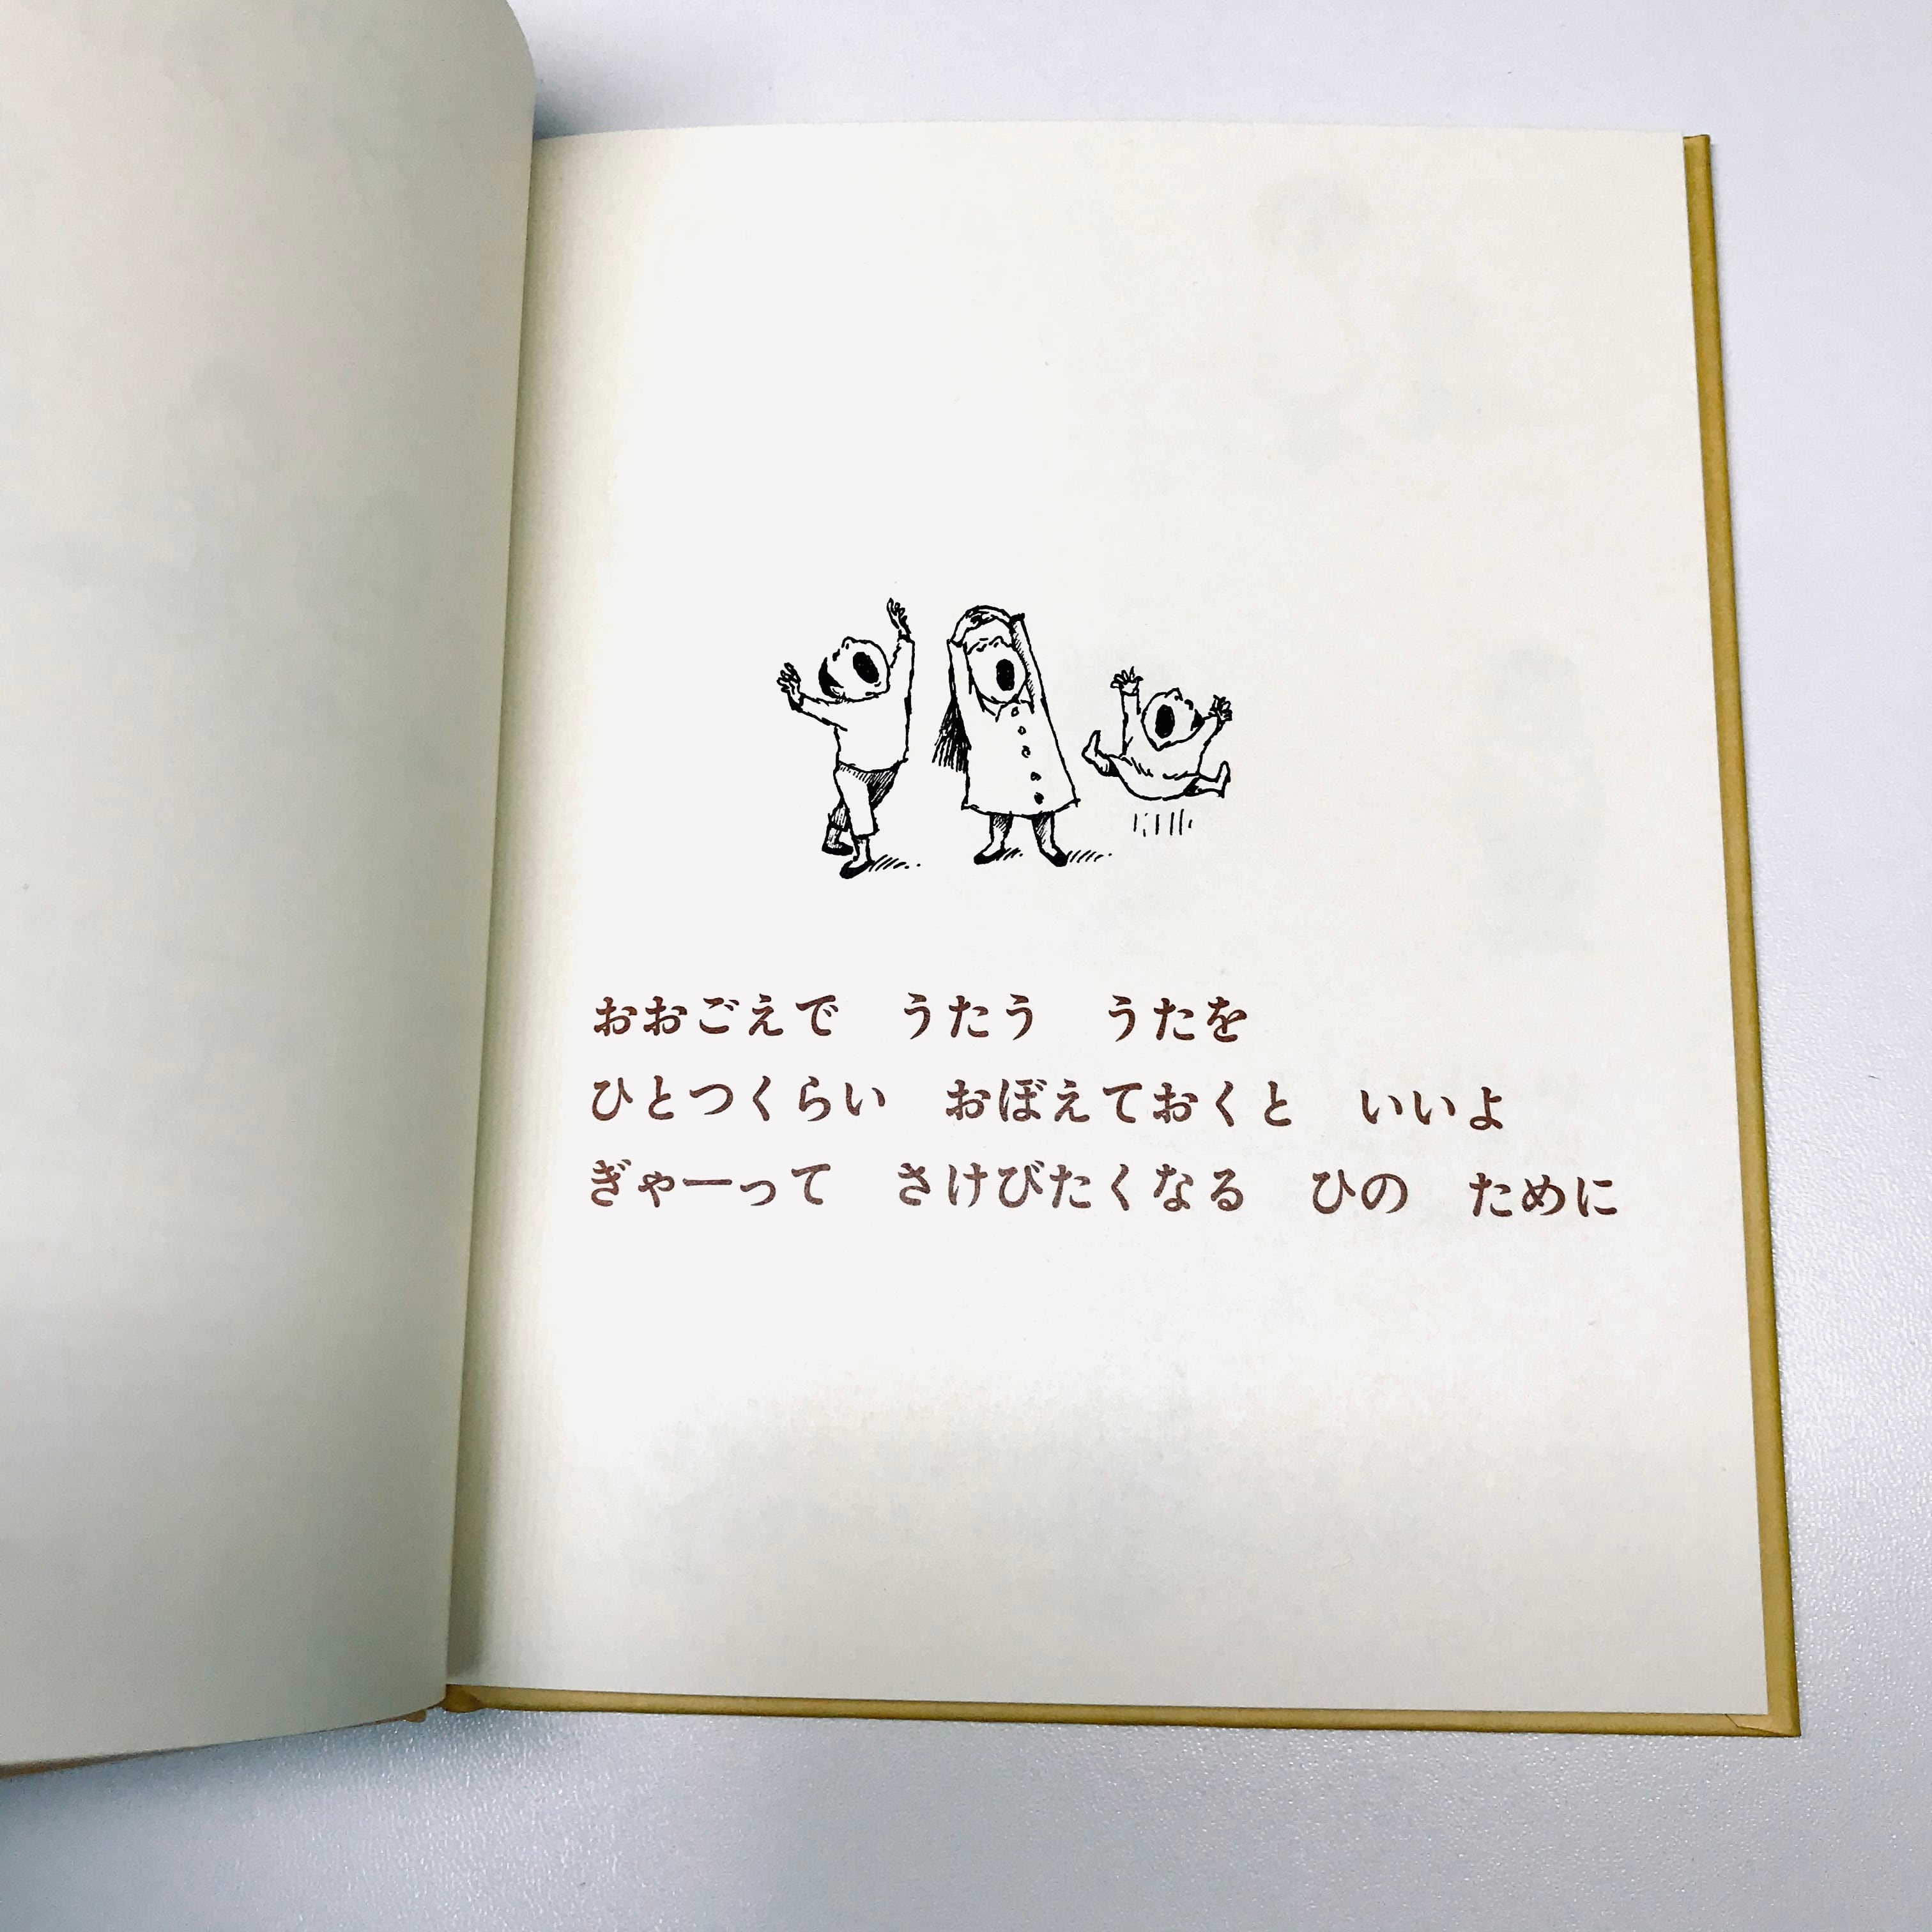 おおごえで　うたう　うたを
ひとつくらい　おぼえておくと　いいよ
ぎゃーって　さけびたくなる　ひの　ために